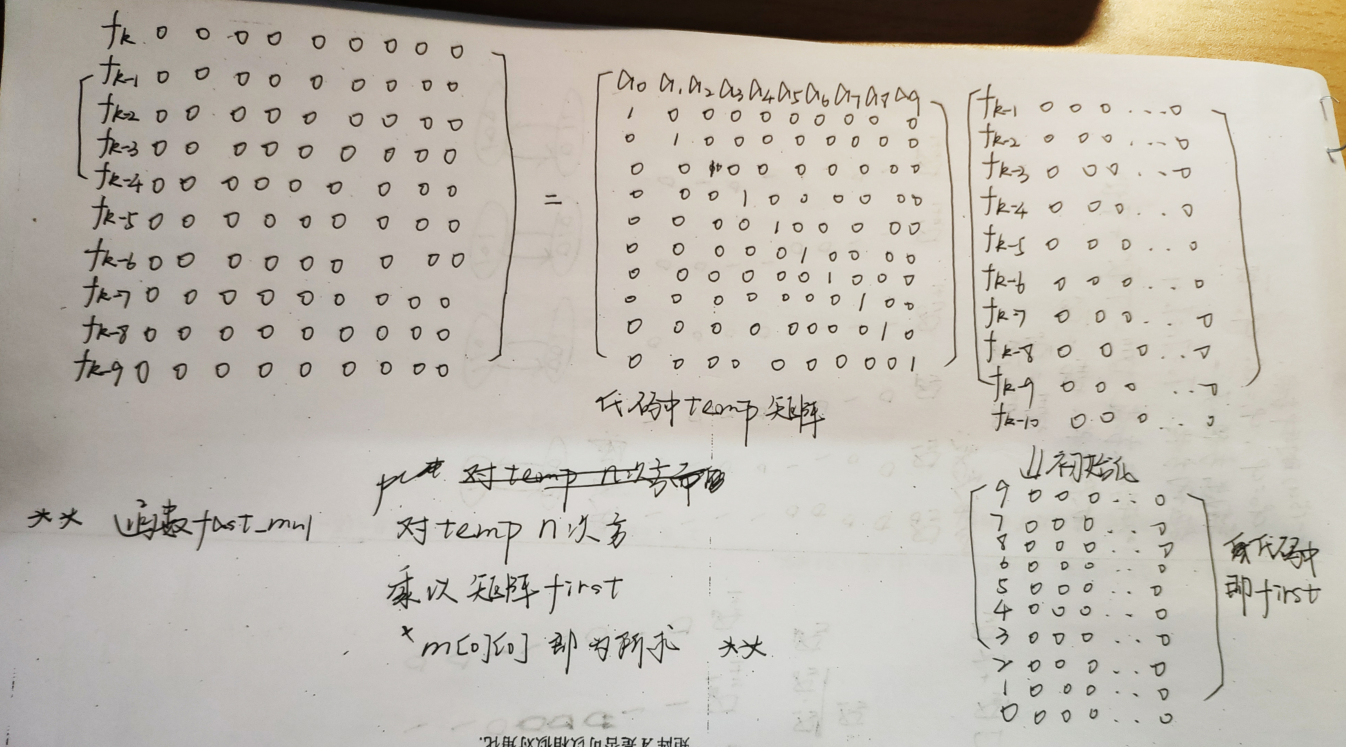 fk 0 0 0 0 0 0 0 0 0
fk-1 0 0 0 0 0 0 0 0 0
fk-2 0 0 0 0 0 0 0 0 0
fk-3 0 0 0 0 0 0 0 0 0
fk-4 0 0 0 0 0 0 0 0 0
fk-5 0 0 0 0 0 0 0 0 0
fk-6 0 0 0 0 0 0 0 0 0
fk-7 0 0 0 0 0 0 0 0 0
fk-8 0 0 0 0 0 0 0 0 0
fk-9 0 0 0 0 0 0 0 0 0
=
a0 a1 a2 a3 a4 a5 a6 a7 a8 a9
1 0 0 0 0 0 0 0 0 0
0 1 0 0 0 0 0 0 0 0
0 0 1 0 0 0 0 0 0 0
0 0 0 1 0 0 0 0 0 0
0 0 0 0 1 0 0 0 0 0
0 0 0 0 0 1 0 0 0 0
0 0 0 0 0 0 1 0 0 0
0 0 0 0 0 0 0 1 0 0
0 0 0 0 0 0 0 0 1 0
0 0 0 0 0 0 0 0 0 1
代码中temp矩阵
fk-1 0 0 0 ... 0
fk-2 0 0 0 ... 0
fk-3 0 0 0 ... 0
fk-4 0 0 0 ... 0
fk-5 0 0 0 ... 0
fk-6 0 0 0 ... 0
fk-7 0 0 0 ... 0
fk-8 0 0 0 ... 0
fk-9 0 0 0 ... 0
fk-10 0 0 0 ... 0
⇓初始化
9 0 0 0 ... 0
7 0 0 0 ... 0
8 0 0 0 ... 0
6 0 0 0 ... 0
5 0 0 0 ... 0
4 0 0 0 ... 0
3 0 0 0 ... 0
2 0 0 0 ... 0
1 0 0 0 ... 0
0 0 0 0 ... 0
代码中
即first
** 函数fast_mul
对temp n次方
乘以矩阵first
*m[0][0]即为所求 **
矩阵A是否可以相似对角化.